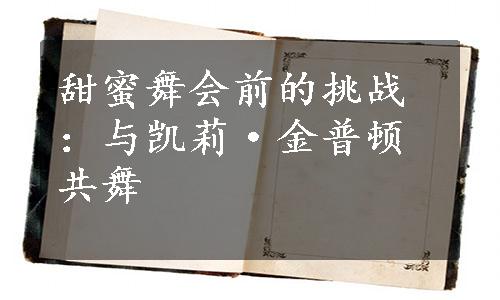 甜蜜舞会前的挑战
：与凯莉·金普顿
共舞